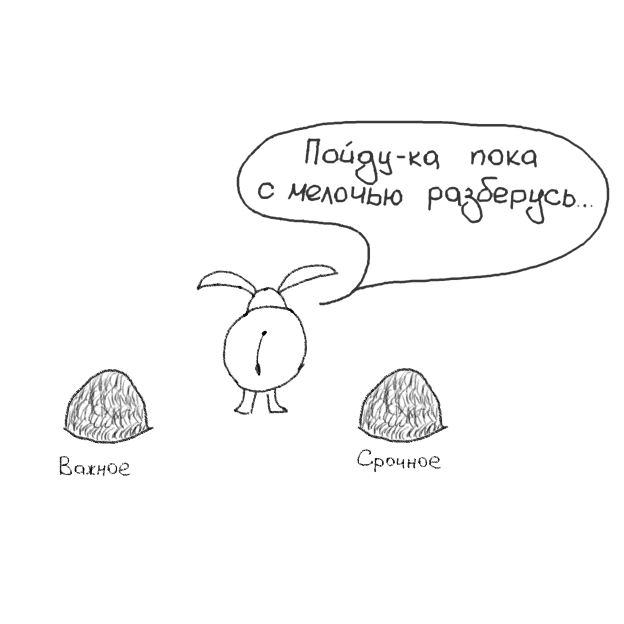 Пойду-ка пока
с мелочью разберусь...
Важное
Срочное